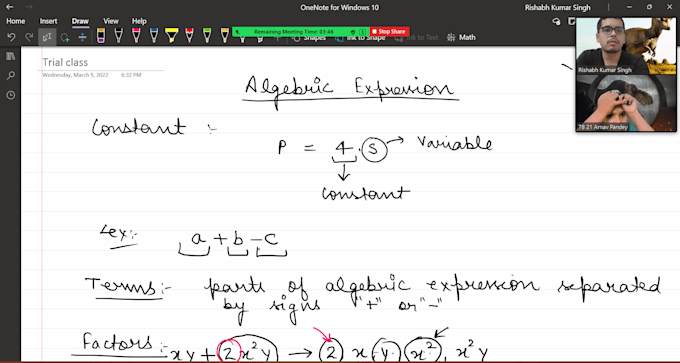 OneNote for Windows 10
Rishabh Kumar Singh
Home Insert Draw View Help
Remaining Meeting Time: 03:46
Stop Share
Shapes Ink to Shape Ink to Text Math
Rishabh Kumar Singh
78 21 Arnav Pandey
Trial class
Wednesday, March 9, 2022 6:32 PM
Algebric Expression
Constant :-
P = 4 . S → Variable
↓
Constant
ex:- a + b - c
Terms:- parts of algebric expression separated
by signs "+" or "-"
Factors:- xy + 2x²y → 2 x y x², x²y